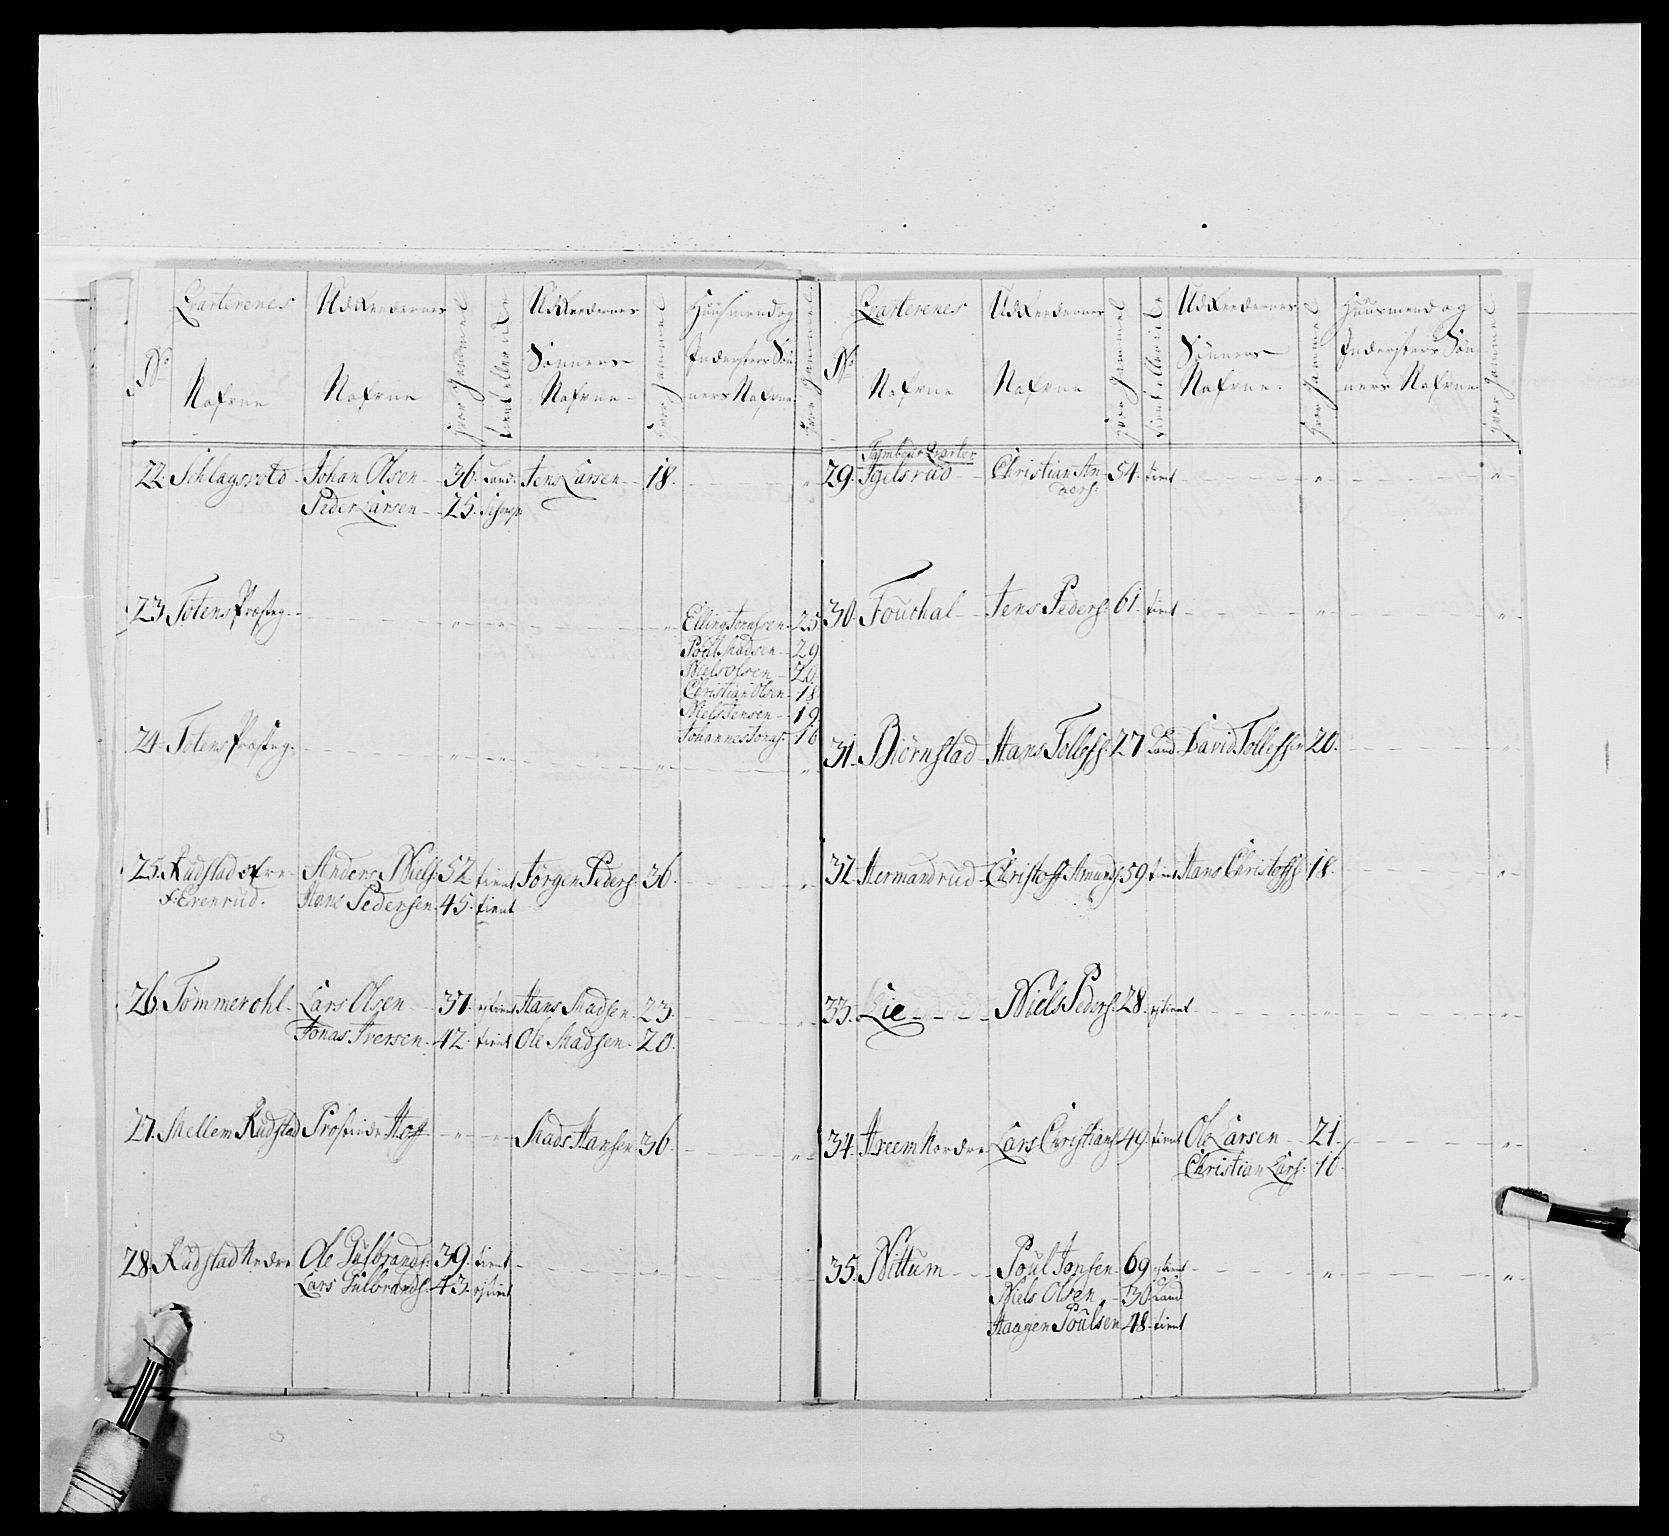 No Qvarterenes Nafvne
Udkredernes Nafvne
hvor Gammel
tient eller ei
Udkredernes Sönners Nafvne
hvor Gammel
Huusmænd og Indersters Sönners Nafvne
hvor Gammel
22. Schlagsvold Johan Olsen 36. Land: Jens Larsen 18.
Peder Larsen 25.
23 Totens Præsteg.
Elling Jonassen 25
Poul Madsen 29
Niels Olsen 20
Christian Olsen 18
Niels Jensen 19
Johannes Jonas: 16
24 Totens Præsteg.
25. Rudstad øfre Anders Niels: 52 tient Jörgen Peders: 36.
s: Evenrud. Hans Pedersen 45. tient
26. Tömmerohl Lars Olsen 37. ej tient Hans Madsen 23.
Jonas Iversen 42. tient Ole Madsen 20.
27. Mellem Rudstad Hoff Mads Hansen 36.
28. Rudstad Nedre Ole Gulbrands: 39. tient
Lars Gulbrands: 43. ej tient
No Qvarterenes Nafvne
Udkredernes Nafvne
hvor Gammel
tient eller ei
Udkredernes Sönners Nafvne.
hvor Gammel
Huusmænd og Indersters Sönners Nafvne
hvor Gammel
Tambour Qvarter
29. Igelsrud Christian An
ders: 54. tient
30. Fouchal Jens Peders: 61. tient
31. Biörnstad Hans Tollefs: 27 Land David Tollefsen 20.
32. Hermandrud Christoff Amunds: 59 tient Hans Christoffs: 18.
33. Lie Niels Peders: 28. ej tient
34. Areem Nordre Lars Christians: 49 tient Ole Larsen 21.
Christian Lars: 16.
35. Nittum Poul Jonsen 69 ej tient
Niels Olsen 30 Land
Haagen Poulsen 48. tient